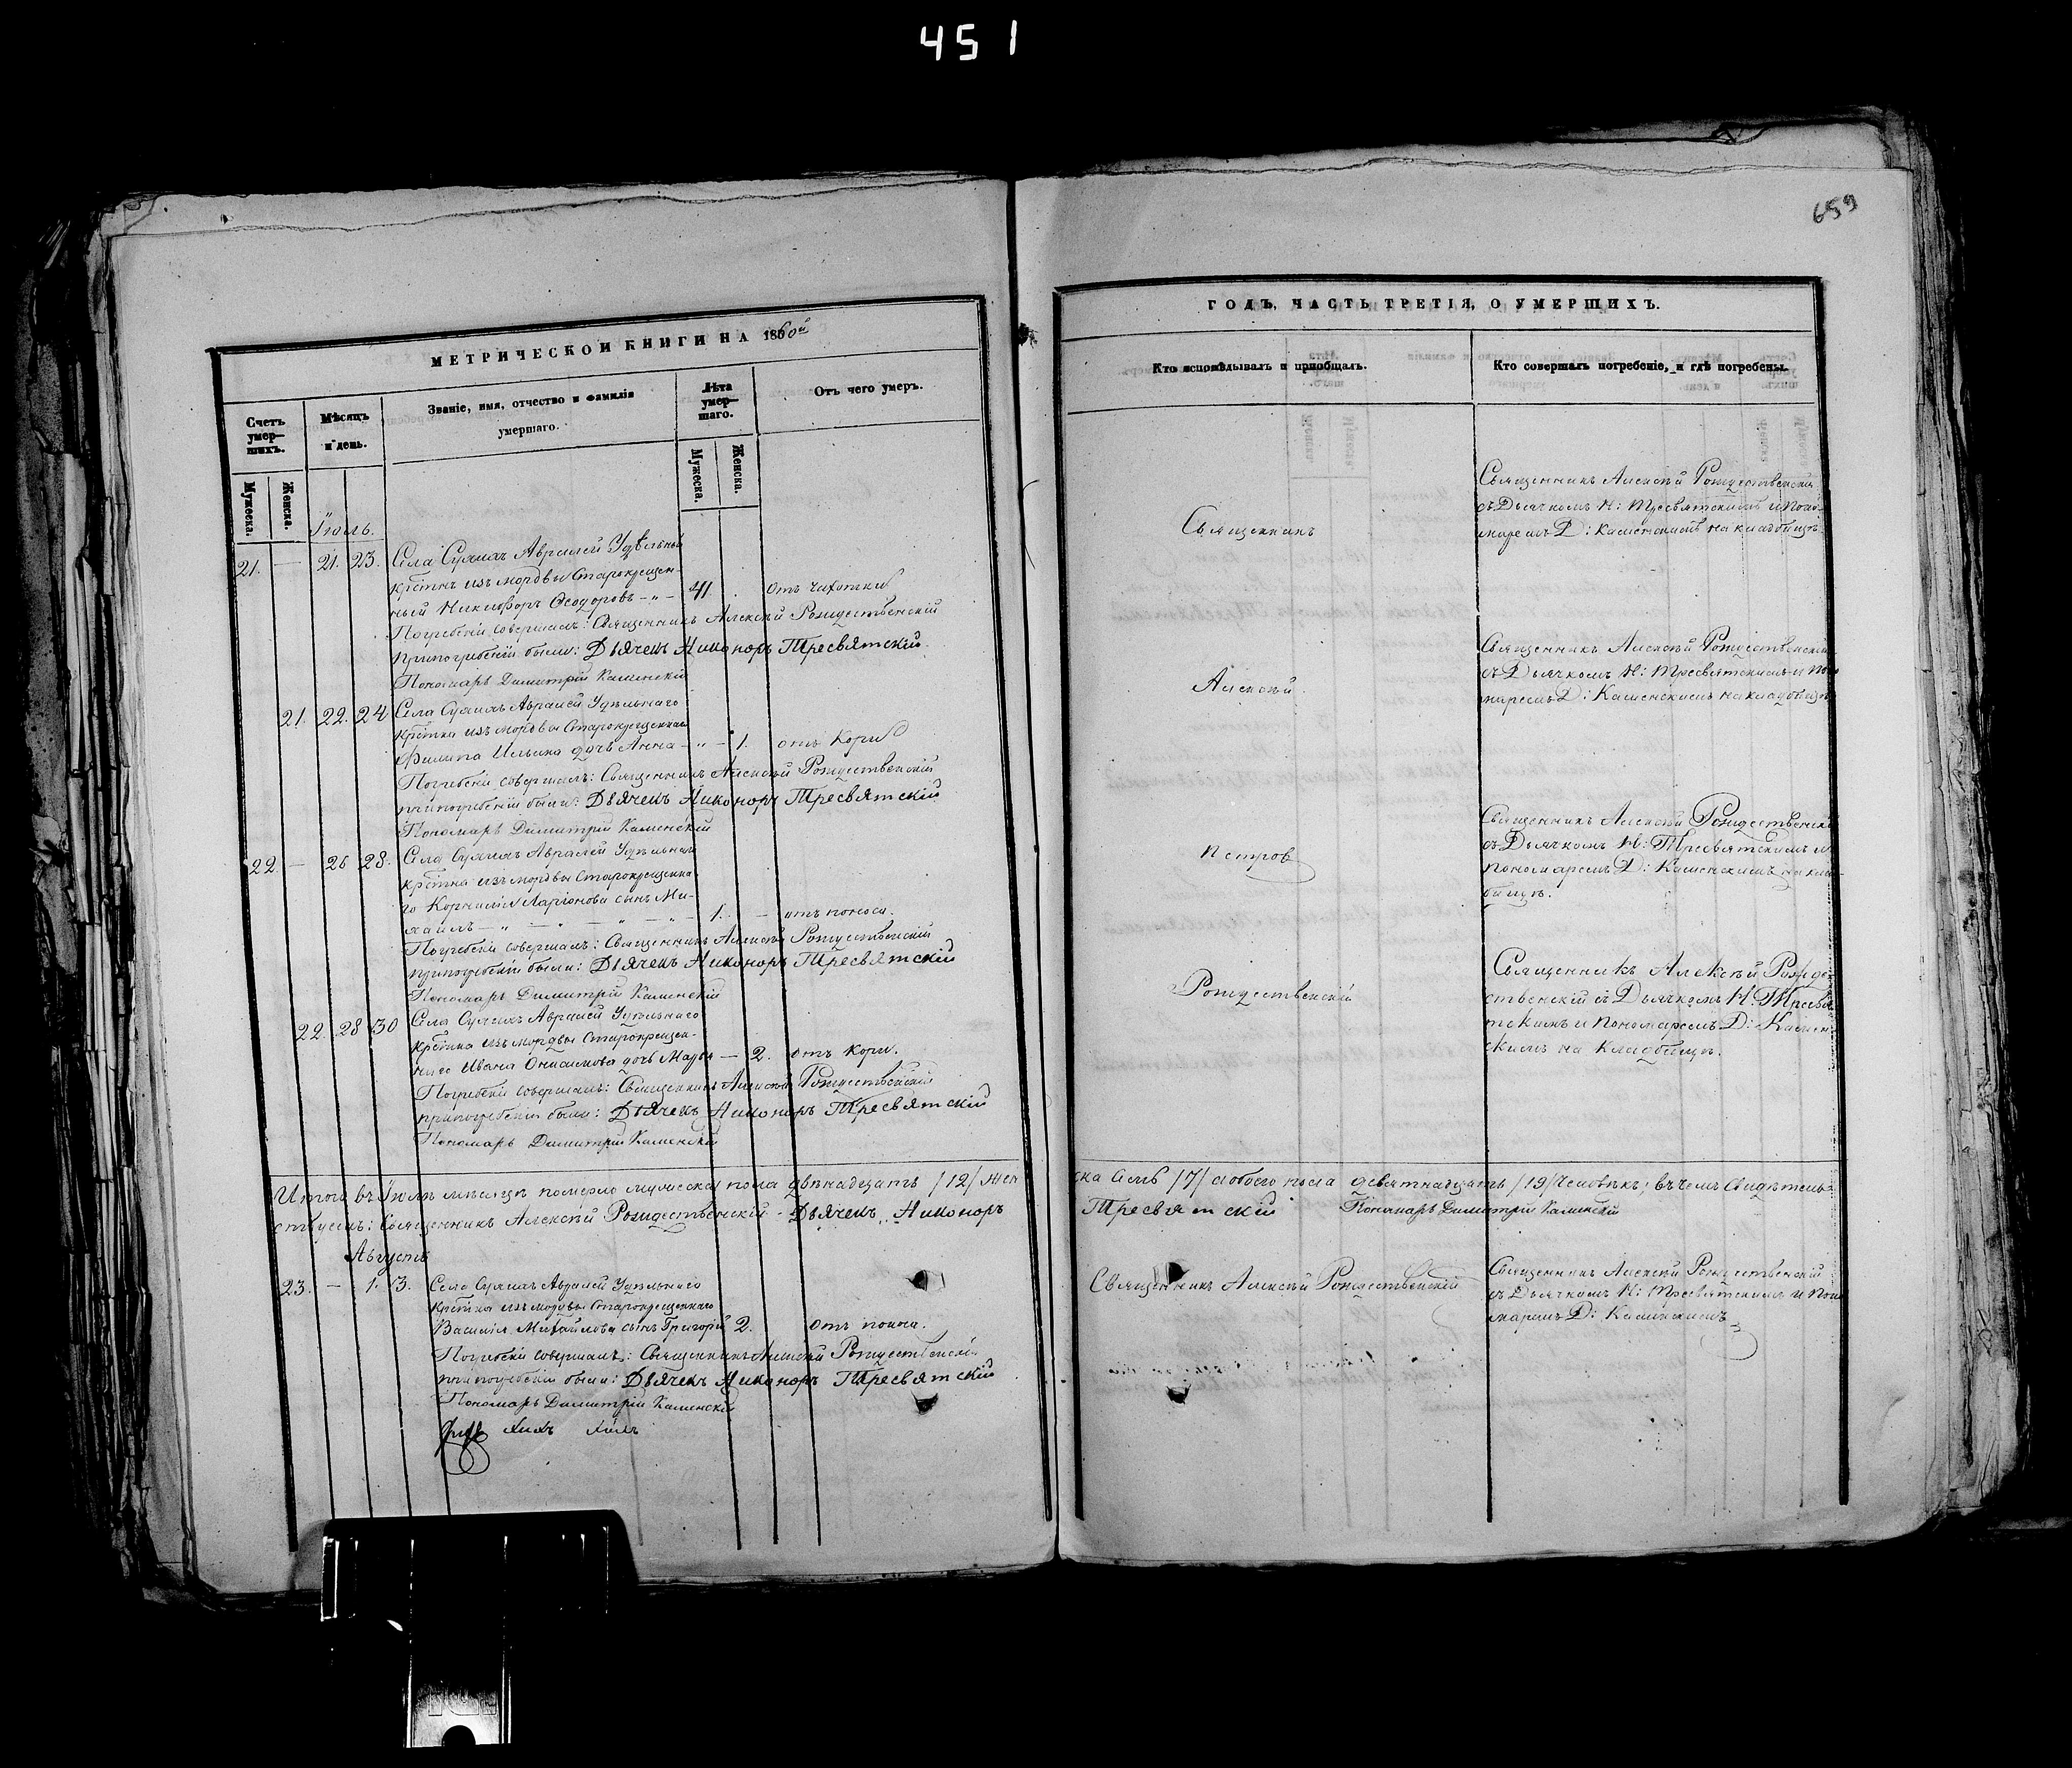 451
659
МЕТРИЧЕСКОЙ КНИГИ НА 1860й
ГОДЪ, ЧАСТЬ ТРЕТІЯ, О УМЕРШИХЪ.
Счетъ умер-шихъ.
Мужеска.
Женска.
Мѣсяцъ и день.
Званіе, имя, отчество и фамилія
умершаго.
Лѣта умер-шаго.
Мужеска.
Женска.
Отъ чего умеръ.
Іюль.
21. — 21. 23. Села Авралей Удѣльный
крестнъ изъ мордвы Старокрещен-
ный Никифоръ Ѳеодоровъ — " — 41. отъ чахотки
Погребеніе совершалъ: Священникъ Алексѣй Рождественскій
при погребеніи были: Дьячекъ Никоноръ Тресвятскій
Пономарь Димитрій Каменскій
21. 22. 24 Села Авралей Удѣльнаго
крестна изъ мордвы Старокрещеннаго
Филипа Ильина дочь Анна — " — 1. отъ кори
Погребеніе совершалъ: Священникъ Алексѣй Рождественскій
при погребеніи были: Дьячекъ Никоноръ Тресвятскій
Пономарь Димитрій Каменскій
22 — 26 28. Села Авралей Удѣльнаго
крестна изъ мордвы Старокрещенна-
го Корнилія Ларіонова сынъ Ми-
хаилъ — " — " — " — 1. — отъ поноса.
Погребеніе совершалъ: Священникъ Алексѣй Рождественскій
при погребеніи были: Дьячекъ Никоноръ Тресвятскій
Пономарь Димитрій Каменскій
22. 28 30 Села Авралей Удѣльнаго
крестна изъ мордвы Старокрещен-
наго Ивана Онисимова дочь — 2. отъ кори.
Погребеніе совершалъ: Священникъ Алексѣй Рождественскій
при погребеніи были: Дьячекъ Никоноръ Тресвятскій
Пономарь Димитрій Каменскій
Итого въ Іюлѣ мѣсяцѣ померло мужеска пола двѣнадцать /12/ жен
ствуемъ: Священникъ Алексѣй Рождественскій - Дьячекъ Никоноръ
Августъ
23. — 1. 3. Села Авралей Удѣльнаго
крестна изъ мордвы Старокрещеннаго
Василія Михайлова сынъ Григорій 2. отъ поноса.
Погребеніе совершалъ: Священникъ Алексѣй Рождественскій
при погребеніи были: Дьячекъ Никоноръ Тресвятскій
Пономарь Димитрій Каменскій
Кто исповѣдывалъ и пріобщалъ.
Кто совершалъ погребеніе, и гдѣ погребены.
Священникъ
Алексѣй
Петров
Рождественскій
Священникъ Алексѣй Рождественскій
съ Дьячкомъ Н: Тресвятскимъ и Поно-
маремъ Д: Каменскимъ на кладбищѣ
Священникъ Алексѣй Рождественскій
съ Дьячкомъ Н: Тресвятскимъ и По
маремъ Д: Каменскимъ на кладбищѣ
Священникъ Алексѣй Рождественск
съ Дьячкомъ Н: Тресвятскимъ и
пономаремъ Д: Каменскимъ на клад-
бищѣ.
Священникъ Алексѣй Рожде-
ственскій съ Дьячкомъ Н: Тресвя
тскимъ и Пономаремъ Д: Камен-
скимъ на кладбищѣ.
ска семь /7/ а обоего пола девятнадцать /19/ человѣкъ; въ чемъ свидѣтель-
Тресвятскій Пономарь Димитрій Каменскій
Священникъ Алексѣй Рождественскій
Священникъ Алексѣй Рождественскій
съ Дьячкомъ Н: Тресвятскимъ и Поно
маремъ Д: Каменскимъ